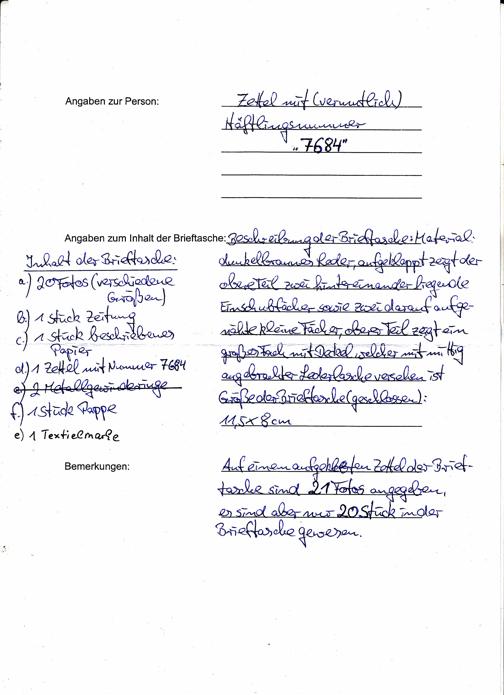 Angaben zur Person:
Zettel mit (vermutlich)
Häftlingsnummer
"7684"
Angaben zum Inhalt der Brieftasche:
Beschreibung der Brieftasche: Material:
dunkelbraunes Leder, aufgeklappt zeigt der
obere Teil zwei hintereinander liegende
Einschubfächer sowie zwei darauf aufge-
nähte kleine Fächer, oberer Teil zeigt ein
großes Fach mit Deckel, welcher mit mittig
angebrachter Lederlasche versehen ist
Größe der Brieftasche (geschlossen):
11,5 x 8 cm
Inhalt der Brieftasche:
a) 20 Fotos (verschiedene
Größen)
b) 1 Stück Zeitung
c.) 1 Stück beschriebenes
Papier
d) 1 Zettel mit Nummer 7684
e) 2 Metallgewinderinge
f.) 1 Stück Pappe
e) 1 Textielmarke
Bemerkungen:
Auf einem aufgeklebten Zettel der Brief-
tasche sind 21 Fotos angegeben,
es sind aber nur 20 Stück in der
Brieftasche gewesen.